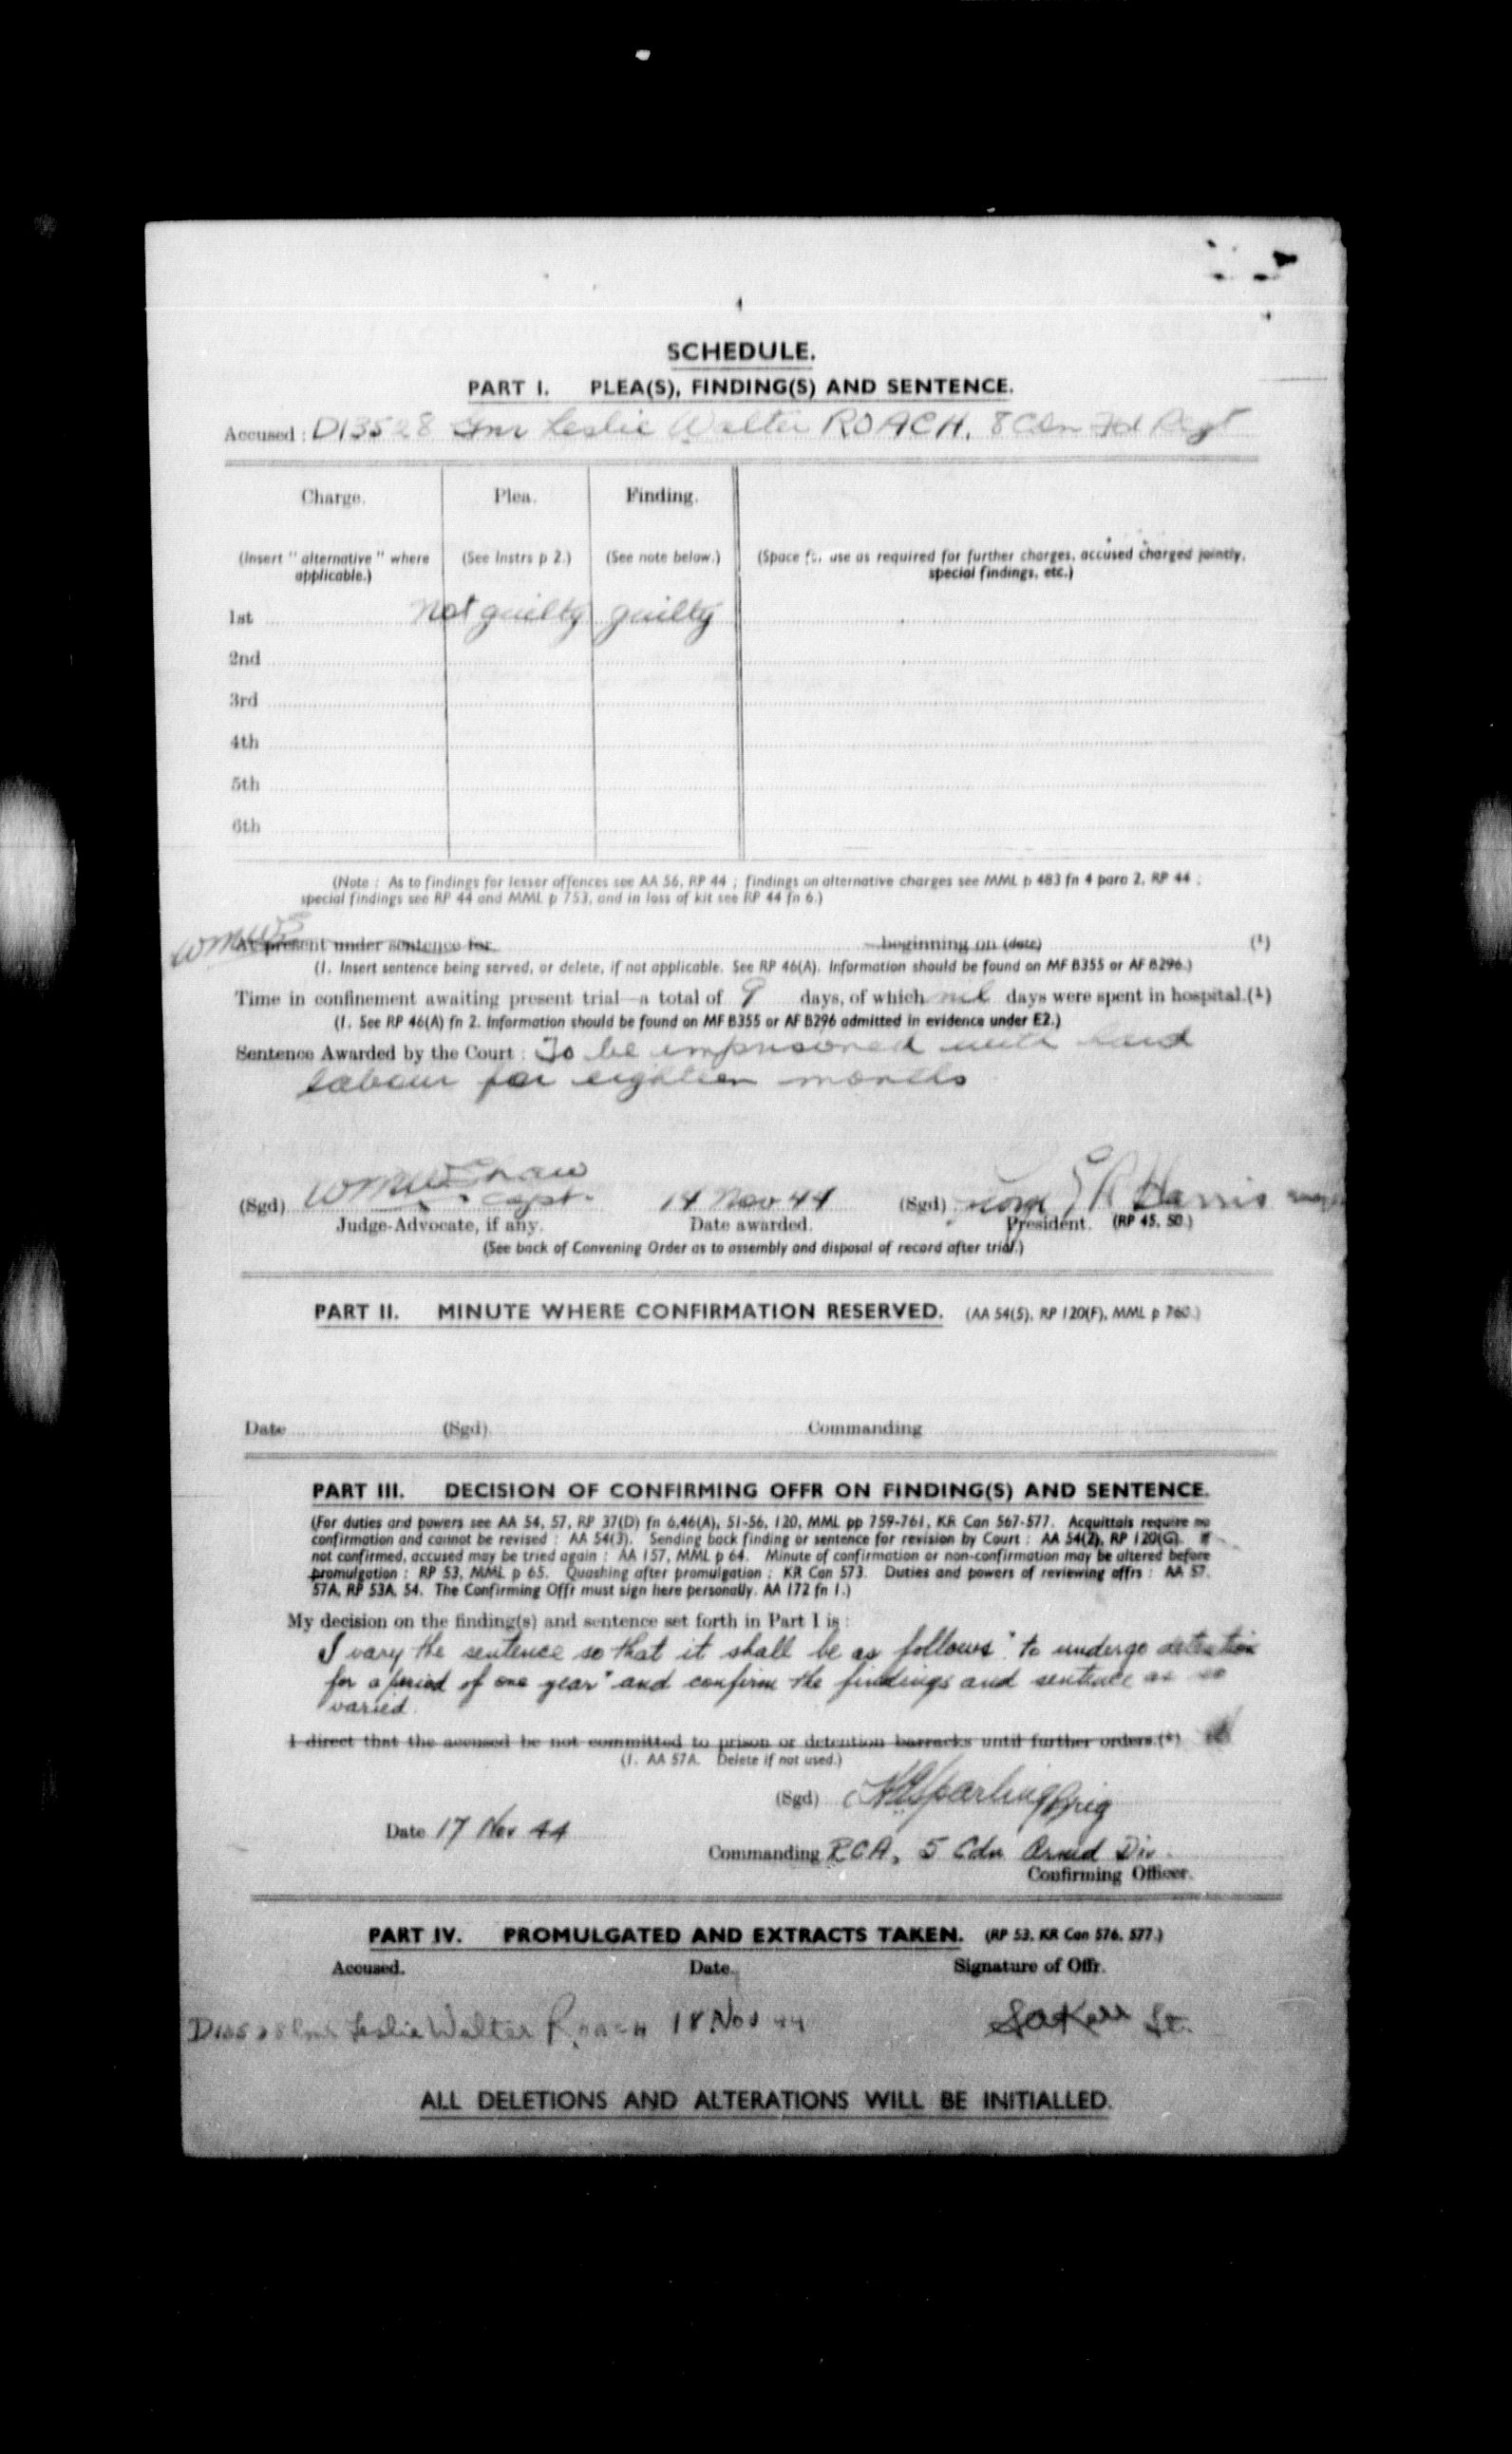 SCHEDULE.
PART I. PLEA(S), FINDING(S) AND SENTENCE.
Accused : D13528 Gnr Leslie Walter ROACH, 8 Cdn Fd Regt
Charge. Plea. Finding.
(Insert " alternative " where applicable.) (See Instrs p 2.) (See note below.) (Space for use as required for further charges, accused charged jointly, special findings, etc.)
1st not guilty guilty
2nd
3rd
4th
5th
6th
(Note : As to findings for lesser offences see AA 56, RP 44 ; findings on alternative charges see MML p 483 fn 4 para 2, RP 44 ;
special findings see RP 44 and MML p 753, and in loss of kit see RP 44 fn 6.)
At present under sentence for beginning on (date) (¹)
(1. Insert sentence being served, or delete, if not applicable. See RP 46(A). Information should be found on MF B355 or AF B296.)
Time in confinement awaiting present trial—a total of 9 days, of which nil days were spent in hospital.(¹)
(1. See RP 46(A) fn 2. Information should be found on MF B355 or AF B296 admitted in evidence under E2.)
Sentence Awarded by the Court : To be imprisoned with hard
labour for eighteen months
(Sgd) Capt. 14 Nov 44 (Sgd) Harris
Judge-Advocate, if any. Date awarded. President. (RP 45, 50.)
(See back of Convening Order as to assembly and disposal of record after trial.)
PART II. MINUTE WHERE CONFIRMATION RESERVED. (AA 54(5), RP 120(F), MML p 760.)
Date (Sgd) Commanding
PART III. DECISION OF CONFIRMING OFFR ON FINDING(S) AND SENTENCE.
(For duties and powers see AA 54, 57, RP 37(D) fn 6,46(A), 51-56, 120, MML pp 759-761, KR Can 567-577. Acquittals require no
confirmation and cannot be revised : AA 54(3). Sending back finding or sentence for revision by Court : AA 54(2), RP 120(G). If
not confirmed, accused may be tried again : AA 157, MML p 64. Minute of confirmation or non-confirmation may be altered before
promulgation : RP 53, MML p 65. Quashing after promulgation : KR Can 573. Duties and powers of reviewing offrs : AA 57.
57A, RP 53A, 54. The Confirming Offr must sign here personally. AA 172 fn 1.)
My decision on the finding(s) and sentence set forth in Part I is :
I vary the sentence so that it shall be as follows "to undergo detention
for a period of one year" and confirm the findings and sentence as so
varied.
I direct that the accused be not committed to prison or detention barracks until further orders.(¹)
(1. AA 57A. Delete if not used.)
(Sgd) Sparling Brig
Date 17 Nov 44
Commanding RCA, 5 Cdn Armd Div.
Confirming Officer.
PART IV. PROMULGATED AND EXTRACTS TAKEN. (RP 53, KR Can 576, 577.)
Accused. Date. Signature of Offr.
D13528 Gnr Leslie Walter ROACH 18 Nov 44 Lt.
ALL DELETIONS AND ALTERATIONS WILL BE INITIALLED.